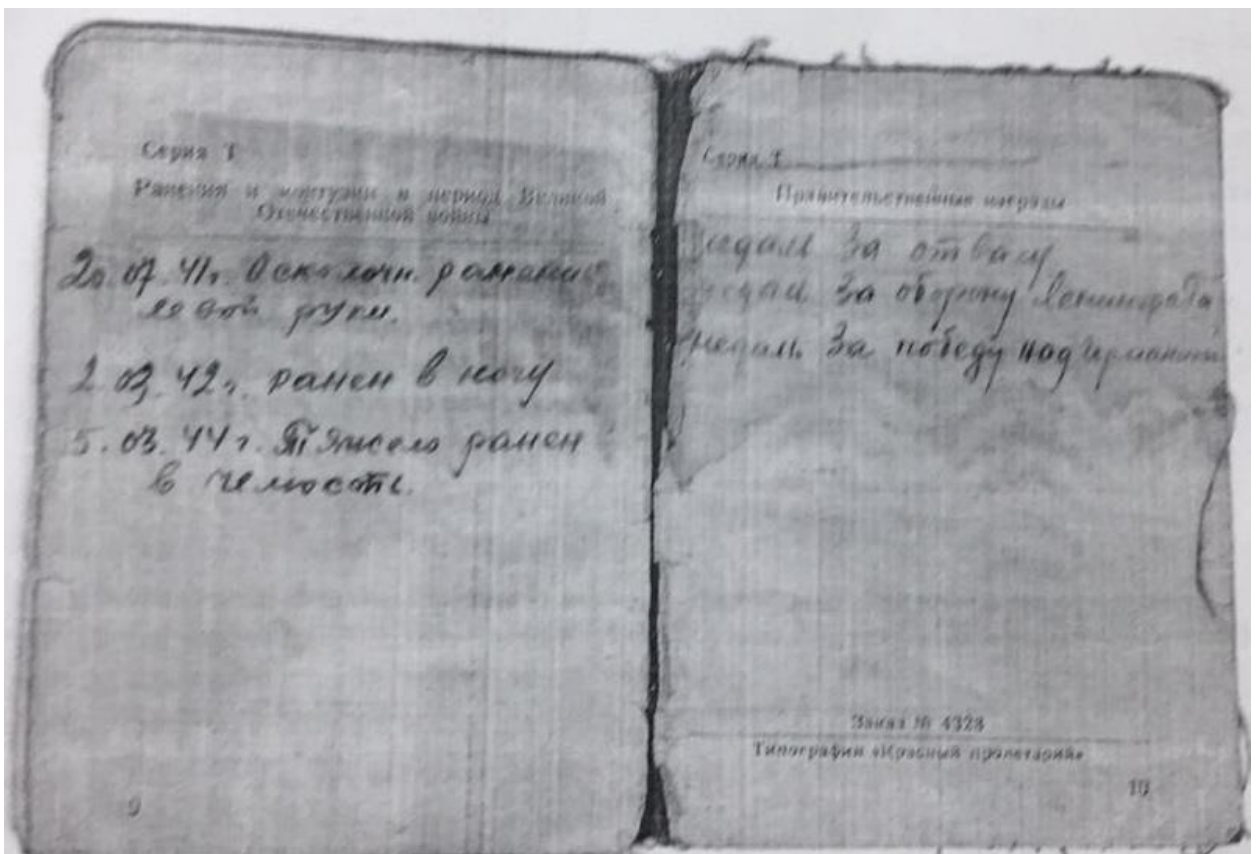 Серия Т
Ранения и контузии в период Великой
Отечественной войны
20.07.41г. Осколочн. ранение
левой руки.
2 03.42г. ранен в ногу
5.03.44г. Тяжело ранен
в челюсть.
9
Серия Т
Правительственные награды
Медаль За отвагу
медаль За оборону Ленинграда
медаль За победу над Германией
Заказ № 4328
Типография «Красный пролетарий»
10